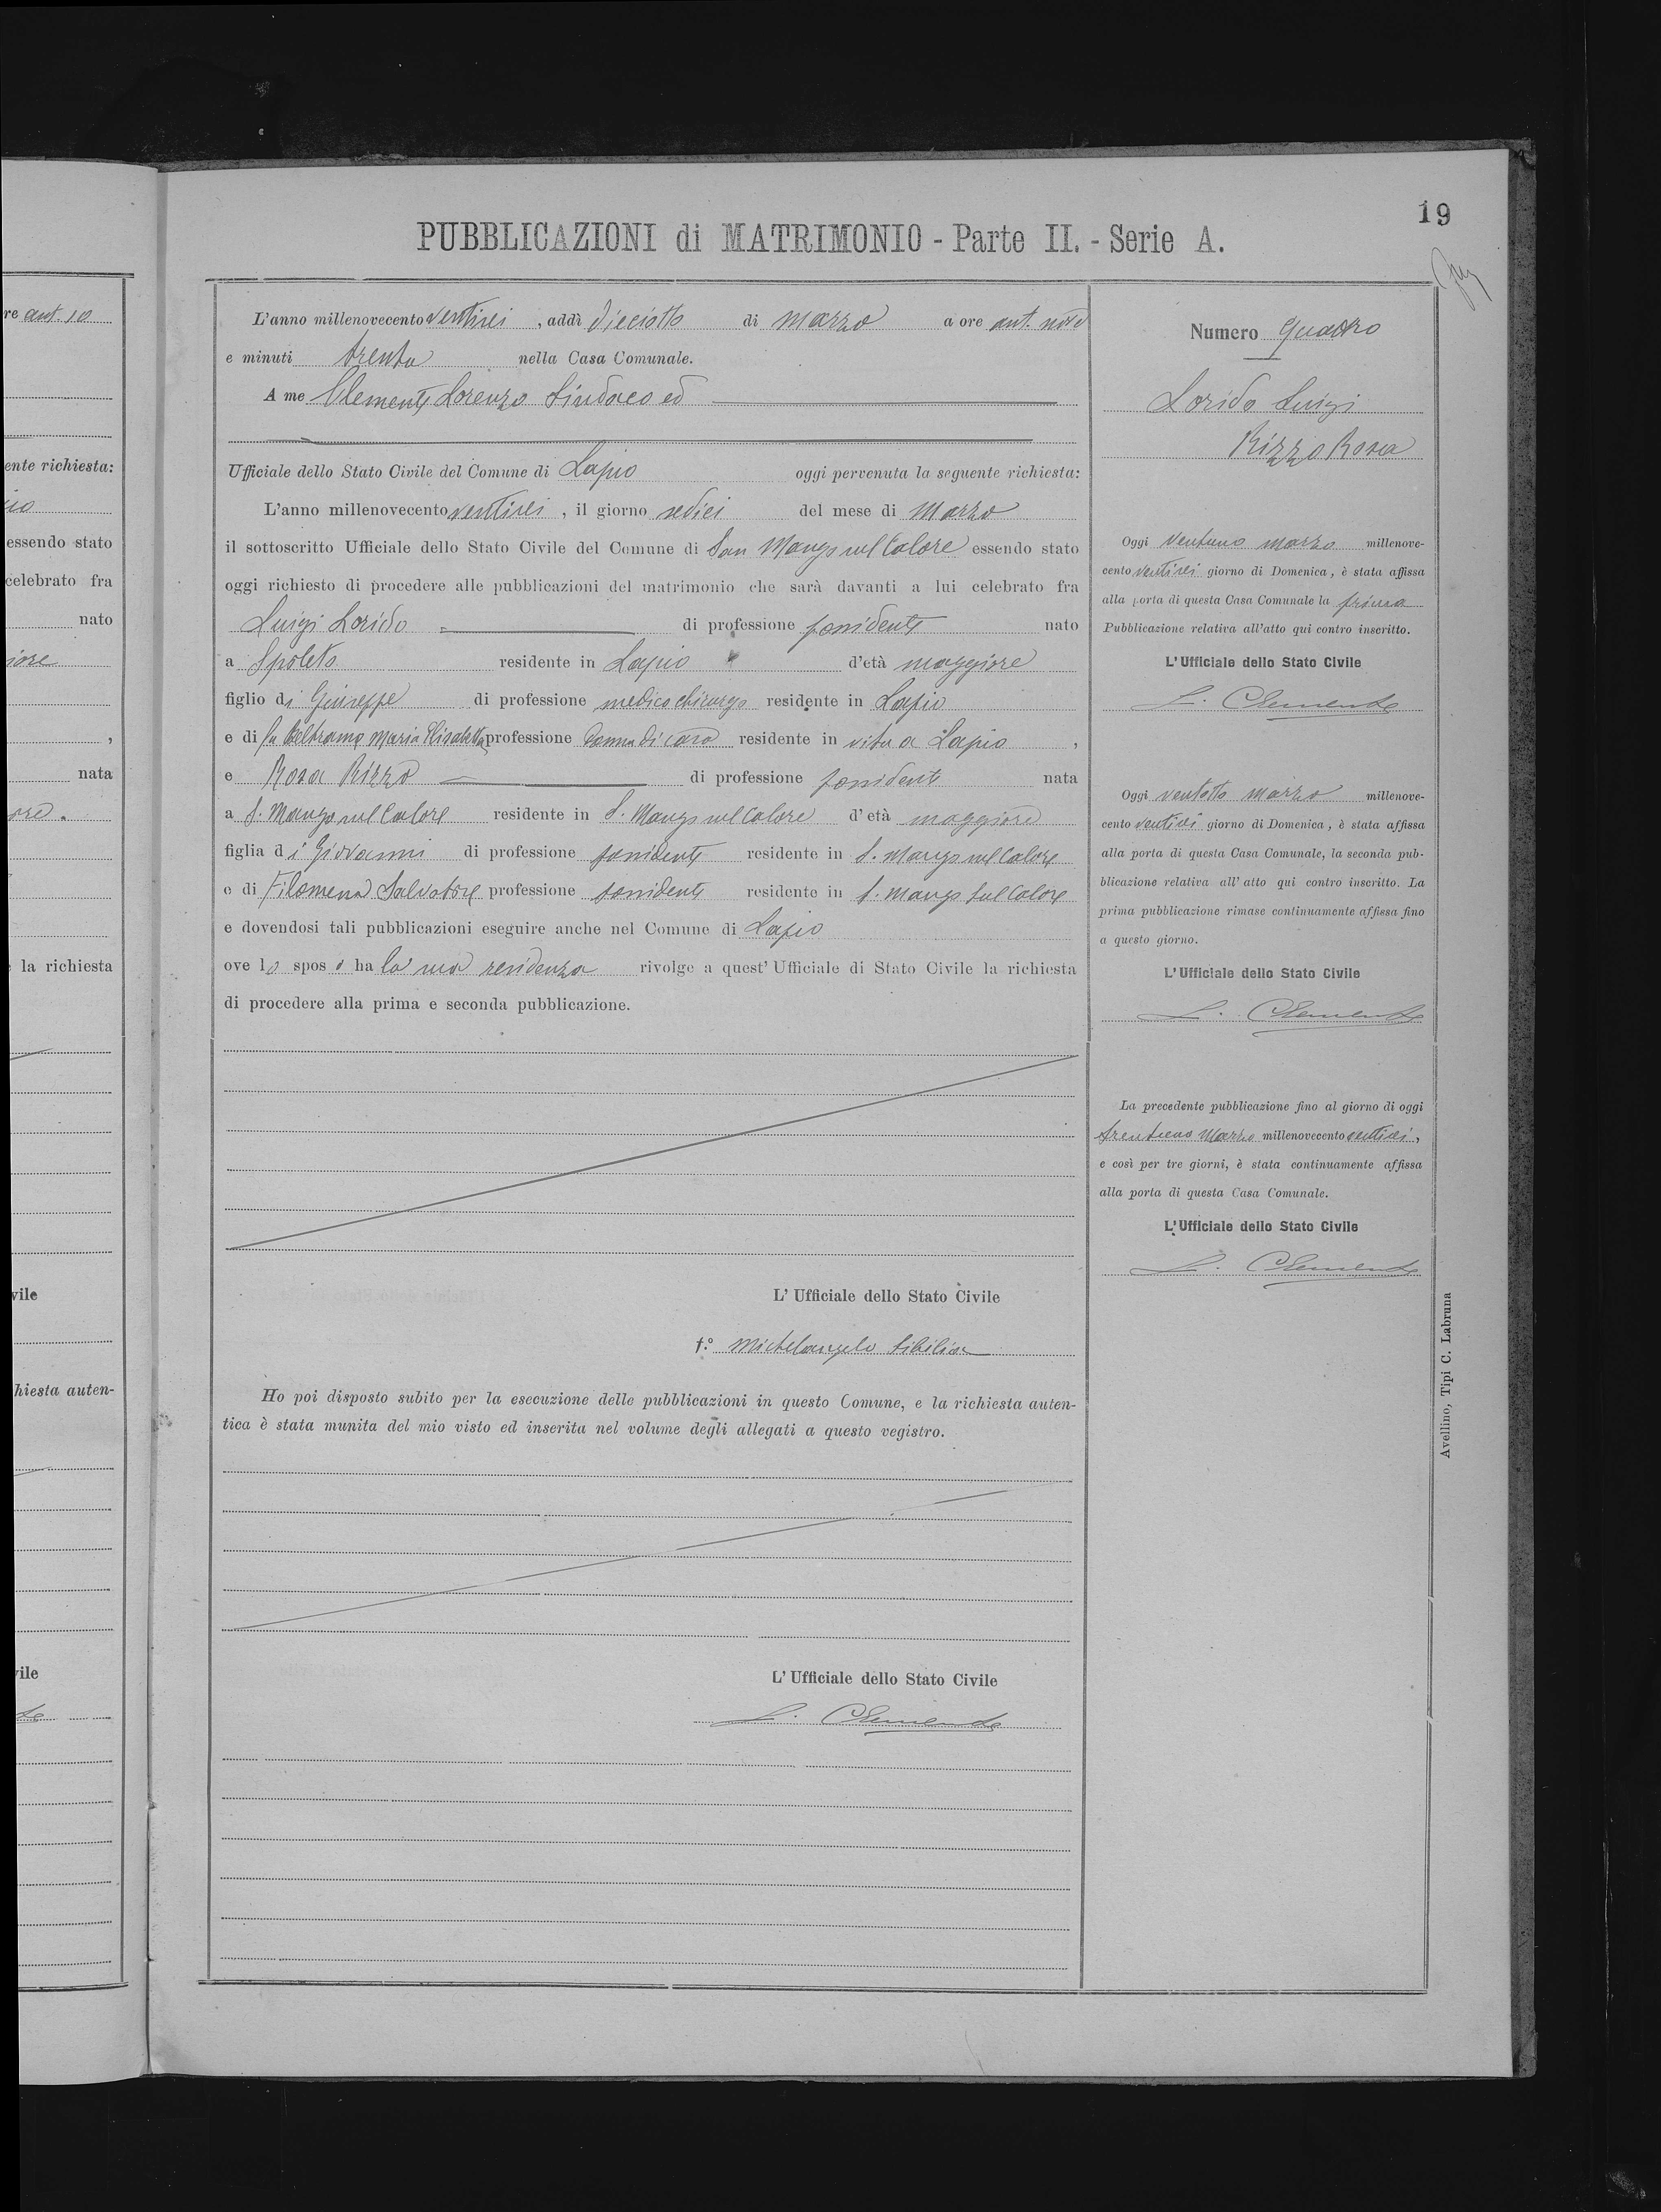 re ant. 10
ente richiesta:
essendo stato
celebrato fra
nato
iore
,
nata
ore.
la richiesta
vile
hiesta auten-
vile
19
PUBBLICAZIONI di MATRIMONIO - Parte II. - Serie A.
L'anno millenovecento ventisei, addì dieciotto di marzo a ore ant. nove
e minuti trenta nella Casa Comunale.
A me Clemente Lorenzo Sindaco ed
Ufficiale dello Stato Civile del Comune di Lapio oggi pervenuta la seguente richiesta:
L'anno millenovecento ventisei, il giorno sedici del mese di Marzo
il sottoscritto Ufficiale dello Stato Civile del Comune di San Mango sul Calore essendo stato
oggi richiesto di procedere alle pubblicazioni del matrimonio che sarà davanti a lui celebrato fra
Luigi Lorido di professione possidente nato
a Spoleto residente in Lapio d'età maggiore
figlio di Giuseppe di professione medico chirurgo residente in Lapio
e di fu Beltramo Maria Elisabetta professione donna di casa residente in vita a Lapio,
e Rosa Rizzo di professione possidente nata
a S. Mango sul Calore residente in S. Mango sul Calore d'età maggiore
figlia di Giovanni di professione possidente residente in S. Mango sul Calore
e di Filomena Salvatore professione possidente residente in S. Mango sul Calore
e dovendosi tali pubblicazioni eseguire anche nel Comune di Lapio
ove lo sposo ha la sua residenza rivolge a quest' Ufficiale di Stato Civile la richiesta
di procedere alla prima e seconda pubblicazione.
L' Ufficiale dello Stato Civile
f.° Michelangelo Sibilia
Ho poi disposto subito per la esecuzione delle pubblicazioni in questo Comune, e la richiesta auten-
tica è stata munita del mio visto ed inserita nel volume degli allegati a questo vegistro.
L' Ufficiale dello Stato Civile
L. Clemente
Numero quattro
Lorido Luigi
Rizzo Rosa
Oggi ventuno marzo millenove-
cento ventisei giorno di Domenica, è stata affissa
alla porta di questa Casa Comunale la prima
Pubblicazione relativa all'atto qui contro inscritto.
L'Ufficiale dello Stato Civile
L. Clemente
Oggi ventotto marzo millenove-
cento ventisei giorno di Domenica, è stata affissa
alla porta di questa Casa Comunale, la seconda pub-
blicazione relativa all' atto qui contro inscritto. La
prima pubblicazione rimase continuamente affissa fino
a questo giorno.
L'Ufficiale dello Stato Civile
L. Clemente
La precedente pubblicazione fino al giorno di oggi
trentuno Marzo millenovecento ventisei,
e così per tre giorni, è stata continuamente affissa
alla porta di questa Casa Comunale.
L'Ufficiale dello Stato Civile
L. Clemente
Avellino, Tipi C. Labruna